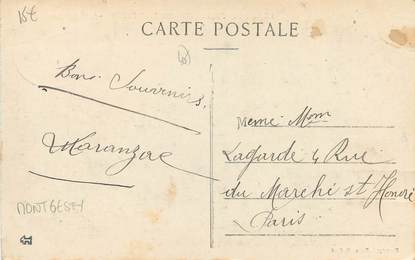 15€
CARTE POSTALE
Bons Souvenirs.
Maranzac
MONTGESTY
Meme Mom
Lagarde 4 Rue
du Marché st Honoré
Paris